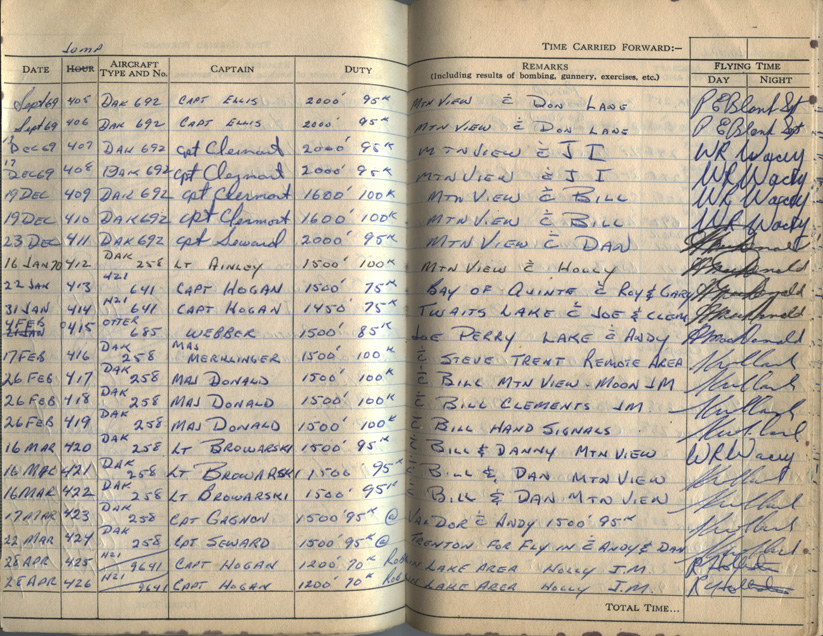 JUMP
TIME CARRIED FORWARD:–
DATE HOUR AIRCRAFT TYPE AND No. CAPTAIN DUTY REMARKS (Including results of bombing, gunnery, exercises, etc.) FLYING TIME DAY NIGHT
Sept 69 405 DAK 692 CAPT ELLIS 2000' 95K MTN VIEW c̄ DON LANE P E Blank Sgt
Sept 69 406 DAK 692 CAPT ELLIS 2000' 95K MTN VIEW c̄ DON LANE P E Blank Sgt
17 DEC 69 407 DAK 692 Cpt Clermont 2000' 95K MTN VIEW c̄ J I WR Wacey
17 DEC 69 408 DAK 692 Cpt Clermont 2000' 95K MTN VIEW c̄ J I WR Wacey
19 DEC 409 DAK 692 Cpt Clermont 1600' 100K MTN VIEW c̄ BILL WR Wacey
19 DEC 410 DAK 692 Cpt Clermont 1600' 100K MTN VIEW c̄ BILL WR Wacey
23 DEC 411 DAK 692 Cpt Seward 2000' 95K MTN VIEW c̄ DAN
16 JAN 70 412 DAK 258 LT AINLEY 1500' 100K MTN VIEW c̄ HOLLY
22 JAN 413 H21 641 CAPT HOGAN 1500' 75K BAY OF QUINTE c̄ ROY & GARY
31 JAN 414 H21 641 CAPT HOGAN 1450' 75K TWAITS LAKE c̄ JOE & CLEM
4 FEB 21 JAN 415 OTTER 685 WEBBER 1500' 85K JOE PERRY LAKE c̄ ANDY
17 FEB 416 DAK 258 MAJ MERKLINGER 1500' 100K c̄ STEVE TRENT REMOTE AREA
26 FEB 417 DAK 258 MAJ DONALD 1500' 100K c̄ BILL MTN VIEW - MOON JM
26 FEB 418 DAK 258 MAJ DONALD 1500' 100K c̄ BILL CLEMENTS JM
26 FEB 419 DAK 258 MAJ DONALD 1500' 100K c̄ BILL HAND SIGNALS
16 MAR 420 DAK 258 LT BROWARSKI 1500' 95K c̄ BILL & DANNY MTN VIEW WR Wacey
16 MAR 421 DAK 258 LT BROWARSKI 1500' 95K c̄ BILL & DAN MTN VIEW
16 MAR 422 DAK 258 LT BROWARSKI 1500' 95K c̄ BILL & DAN MTN VIEW
17 MAR 423 DAK 258 CPT GAGNON 1500' 95K @ VAL DOR c̄ ANDY 1500' 95K
22 MAR 424 DAK 258 CPT SEWARD 1500' 95K @ TRENTON FOR FLY IN c̄ ANDY & DAN
28 APR 425 H21 9641 CAPT HOGAN 1200' 70K LAKE AREA HOLLY J.M.
28 APR 426 H21 9641 CAPT HOGAN 1200' 70K LAKE AREA HOLLY J.M.
TOTAL TIME...